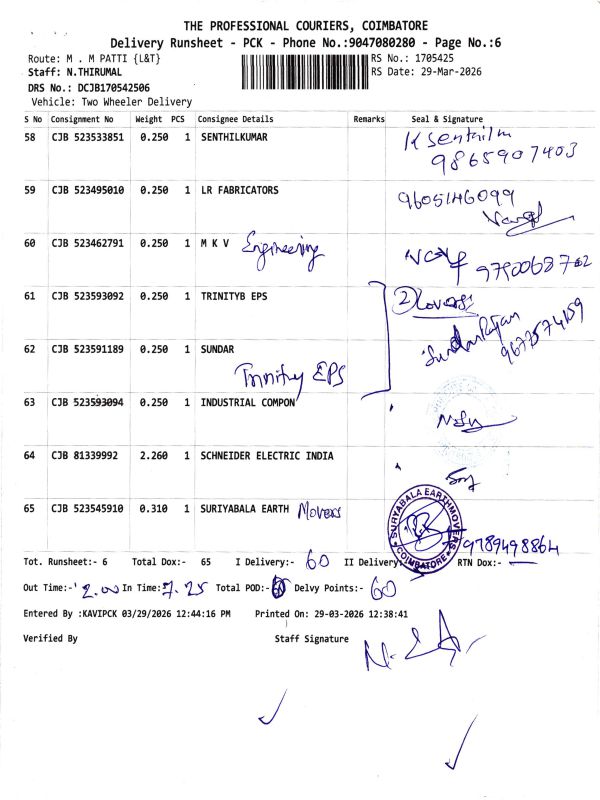 THE PROFESSIONAL COURIERS, COIMBATORE
Delivery Runsheet - PCK - Phone No.:9047080280 - Page No.:6
Route: M . M PATTI {L&T} RS No.: 1705425
Staff: N.THIRUMAL RS Date: 29-Mar-2026
DRS No.: DCJB170542506
Vehicle: Two Wheeler Delivery
S No Consignment No Weight PCS Consignee Details Remarks Seal & Signature
58 CJB 523533851 0.250 1 SENTHILKUMAR K Senthil
9865907403
59 CJB 523495010 0.250 1 LR FABRICATORS 9605146099
60 CJB 523462791 0.250 1 M K V Engineering
61 CJB 523593092 0.250 1 TRINITYB EPS 2 Covers
62 CJB 523591189 0.250 1 SUNDAR SundarRajan
Trinity EPS 9677574159
63 CJB 523593094 0.250 1 INDUSTRIAL COMPON
64 CJB 81339992 2.260 1 SCHNEIDER ELECTRIC INDIA
65 CJB 523545910 0.310 1 SURIYABALA EARTH Movers
SURYABALA EARTHMOVERS COIMBATORE
9789498864
Tot. Runsheet:- 6 Total Dox:- 65 I Delivery:- 60 II Delivery: RTN Dox:-
Out Time:- 2.00 In Time: 7.25 Total POD:- 60 Delvy Points:- 60
Entered By :KAVIPCK 03/29/2026 12:44:16 PM Printed On: 29-03-2026 12:38:41
Verified By Staff Signature